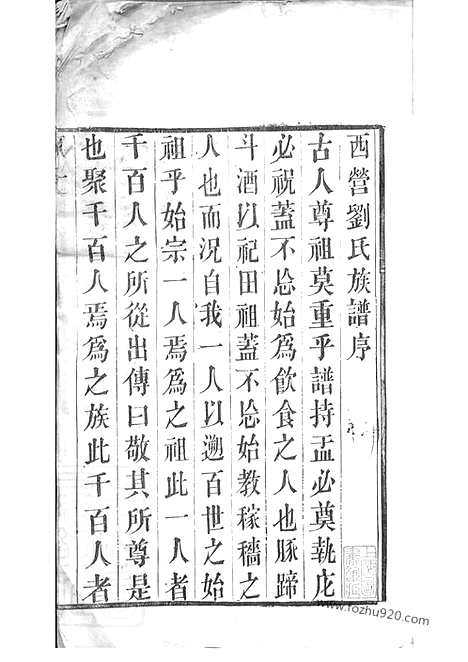 西營劉氏族譜序
古人尊祖莫重乎譜持盂必奠執庀
必祝蓋不忘始爲飲食之人也豚蹄
斗酒以祀田祖蓋不忘始教稼穡之
人也而況自我一人以遡百世之始
祖乎始宗一人焉爲之祖此一人者
千百人之所從出傳曰敬其所尊是
也聚千百人焉爲之族此千百人者
www.fozhu920.com